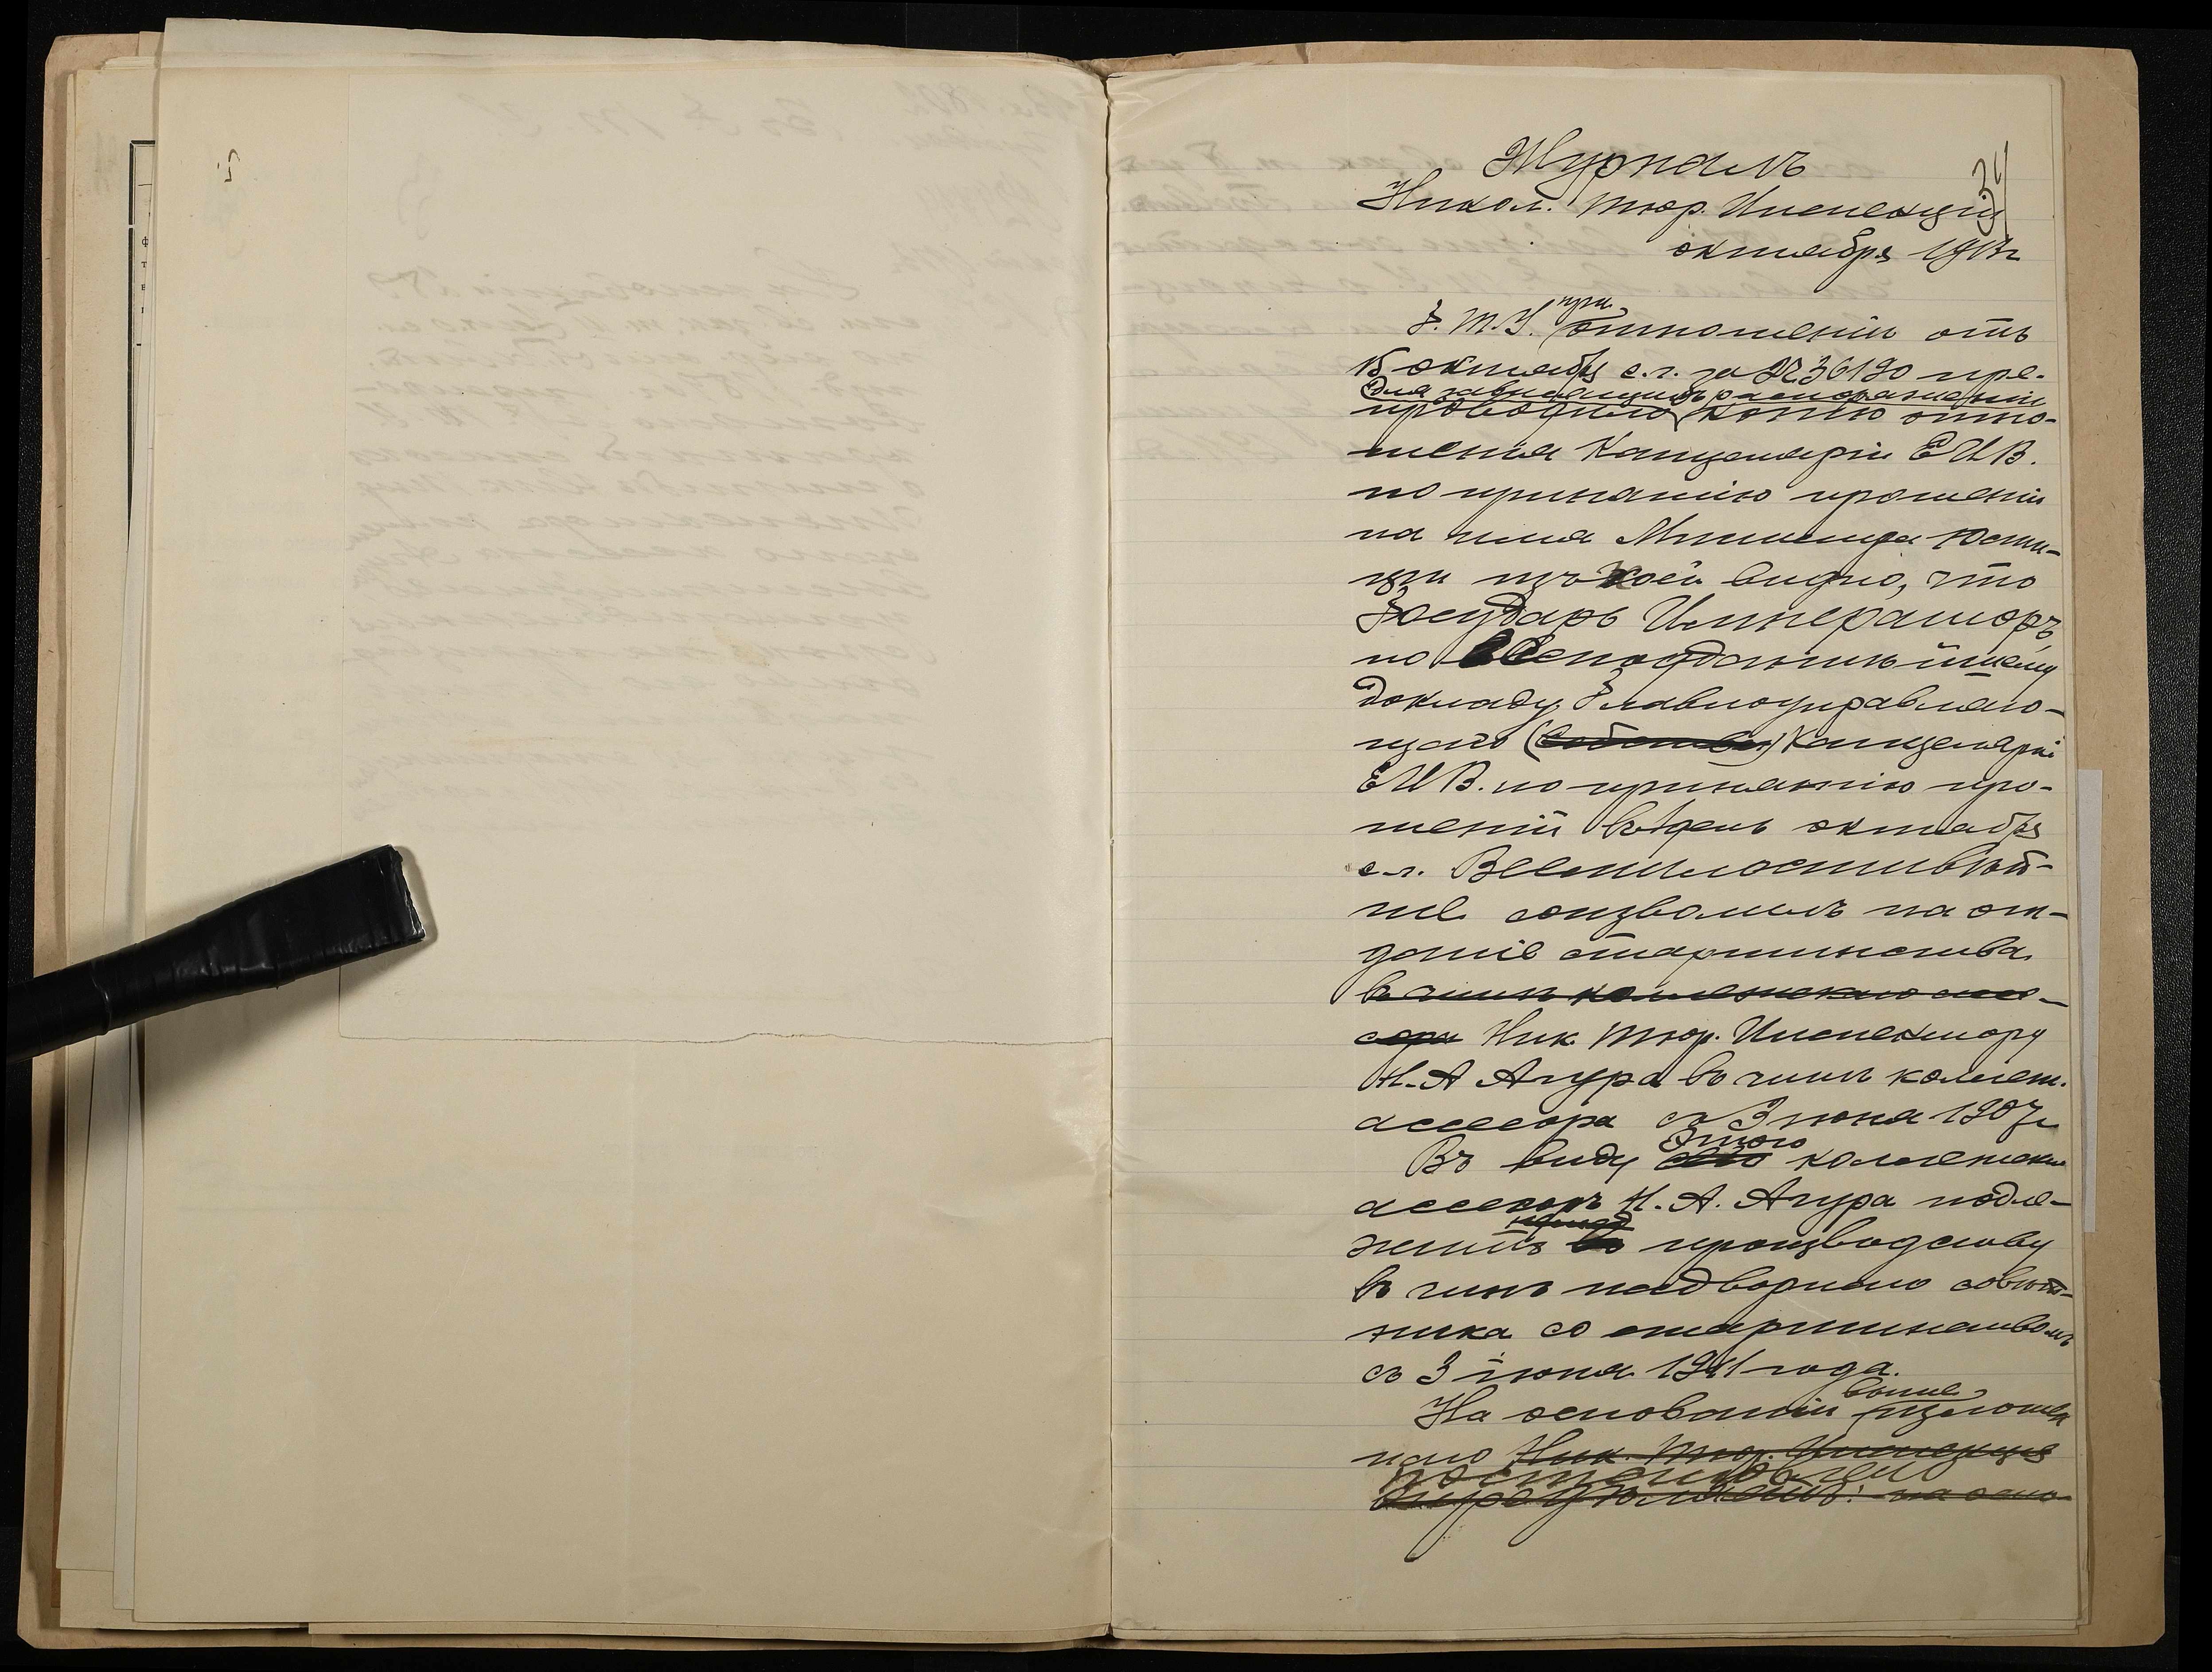 34
Журналъ
Никол. Тюр. Инспекціи
октября 191 г
Г. Т. У. при отношеніи отъ
15 октября с. г. за № 36190 пре-
для зависящихъ распоряженій
проводило копію отно-
шенія Канцеляріи ЕИВ.
по принятію прошеній
на имя Министра Юсти-
ціи изъ коей видно, что
Государь Императоръ
по Всеподданнѣйшему
докладу Главноуправляю-
щаго Канцеляріи
ЕИВ. по принятію про-
шеній въ день октября
с. г. Всемилостивѣй-
ше соизволилъ на от-
даніе старшинства
въ чинѣ коллежскаго асес-
сора Ник. Тюр. Инспектору
Н. А Агура въ чинѣ коллеж.
ассесора съ 3 іюня 1907 г
Въ виду этого коллежскій
ассесоръ Н. А. Агура подле-
житъ производству
въ чинъ надворнаго совѣт-
ника со старшинствомъ
съ 3 іюня 1911 года.
На основаніи выше изложен
наго Ник. Тюр. Инспекція
постановила
на осно-